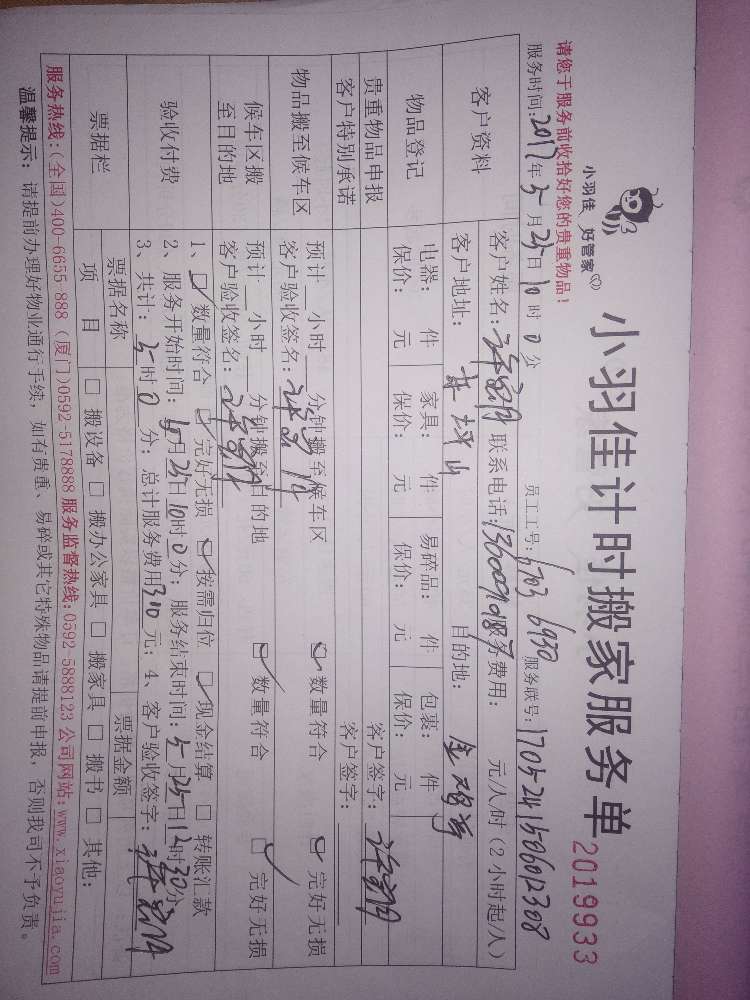 小羽佳 好管家
小羽佳计时搬家服务单
2019933
请您于服务前收拾好您的贵重物品!
服务时间:2017年5月25日10时0分 员工工号:6703 6930 服务联号:1705241506012308
客户资料
客户姓名: 联系电话: 服务费用: 元/人/时(2小时起/人)
客户地址: 目的地:
物品登记
电器: 件 家具: 件 易碎品: 件 包裹: 件
保价: 元 保价: 元 保价: 元 保价: 元
贵重物品申报 客户签字:
客户特别承诺 客户签字:
物品搬至候车区
预计 小时 分钟搬至候车区 数量符合 完好无损
客户验收签名:
候车区搬至目的地
预计 小时 分钟搬至目的地 数量符合 完好无损
客户验收签名:
验收付费
1、 数量符合 完好无损 按需归位 现金结算 转账汇款
2、服务开始时间:5月25日10时0分;服务结束时间:5月25日12时30分
3、共计: 时0分;总计服务费用300元;4、客户验收签字:
票据栏
票据名称 票据金额
项目 搬设备 搬办公家具 搬家具 搬书 其他:
服务热线:(全国)400-6655-888 (厦门)0592-5178888 服务监督热线:0592-5888123 公司网站:www.xiaoyujia.com
温馨提示: 请提前办理好物业通行手续,如有贵重、易碎或其它特殊物品请提前申报,否则我司不予负责。